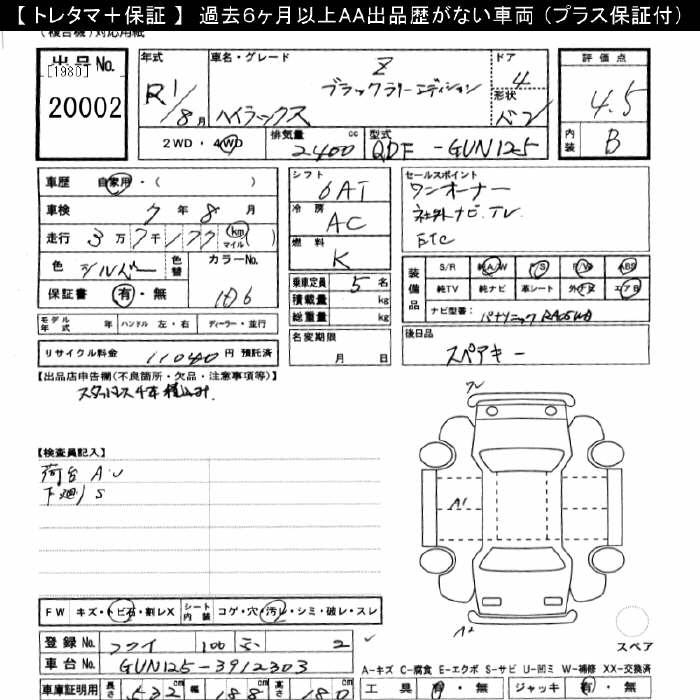 【 トレタマ＋保証 】 過去６ヶ月以上AA出品歴がない車両（プラス保証付）
(複合機)対応用紙
出品No.
[1980]
20002
年式
R1/8月
車名・グレード
Z
ブラックラリーエディション
ハイラックス
ドア
4
形状
バン
評価点
4.5
内装
B
2WD ・ 4WD
排気量
2400 cc
型式
QDF - GUN125
車歴 自家用・( )
車検 7 年 8 月
走行 3万7千177 km マイル ( )
色 シルバー
色替
カラーNo.
1D6
保証書 有・無
シフト
6AT
冷房
AC
燃料
K
乗車定員 5 名
積載量 kg
総重量 kg
名変期限
月 日
セールスポイント
ワンオーナー
社外ナビ.TV
ETC
装備品
S/R 純A/W P/S P/W ABS
純TV 純ナビ 革シート 外ナビ エアB
ナビ型番: パナソニック
モデル年式 年 ハンドル 左・右 ディーラー・並行
リサイクル料金 11040 円 預託済
後日品
スペアキー
【出品店申告欄(不良箇所・欠品・注意事項等)】
スタッドレス4本積込み.
【検査員記入】
荷台 A.U
下廻り S
A1
FW キズ・トビ石・割レX シート内装 コゲ・穴・汚レ・シミ・破レ・スレ
登録 No. 100 2
車台 No. GUN125-3912303
車庫証明用 長さ 532 cm 幅 188 cm 高さ 180 cm
スペア
A-キズ C-腐食 E-エクボ S-サビ U-凹ミ W-補修 XX-交換済
工具 有・無 ジャッキ 有・無